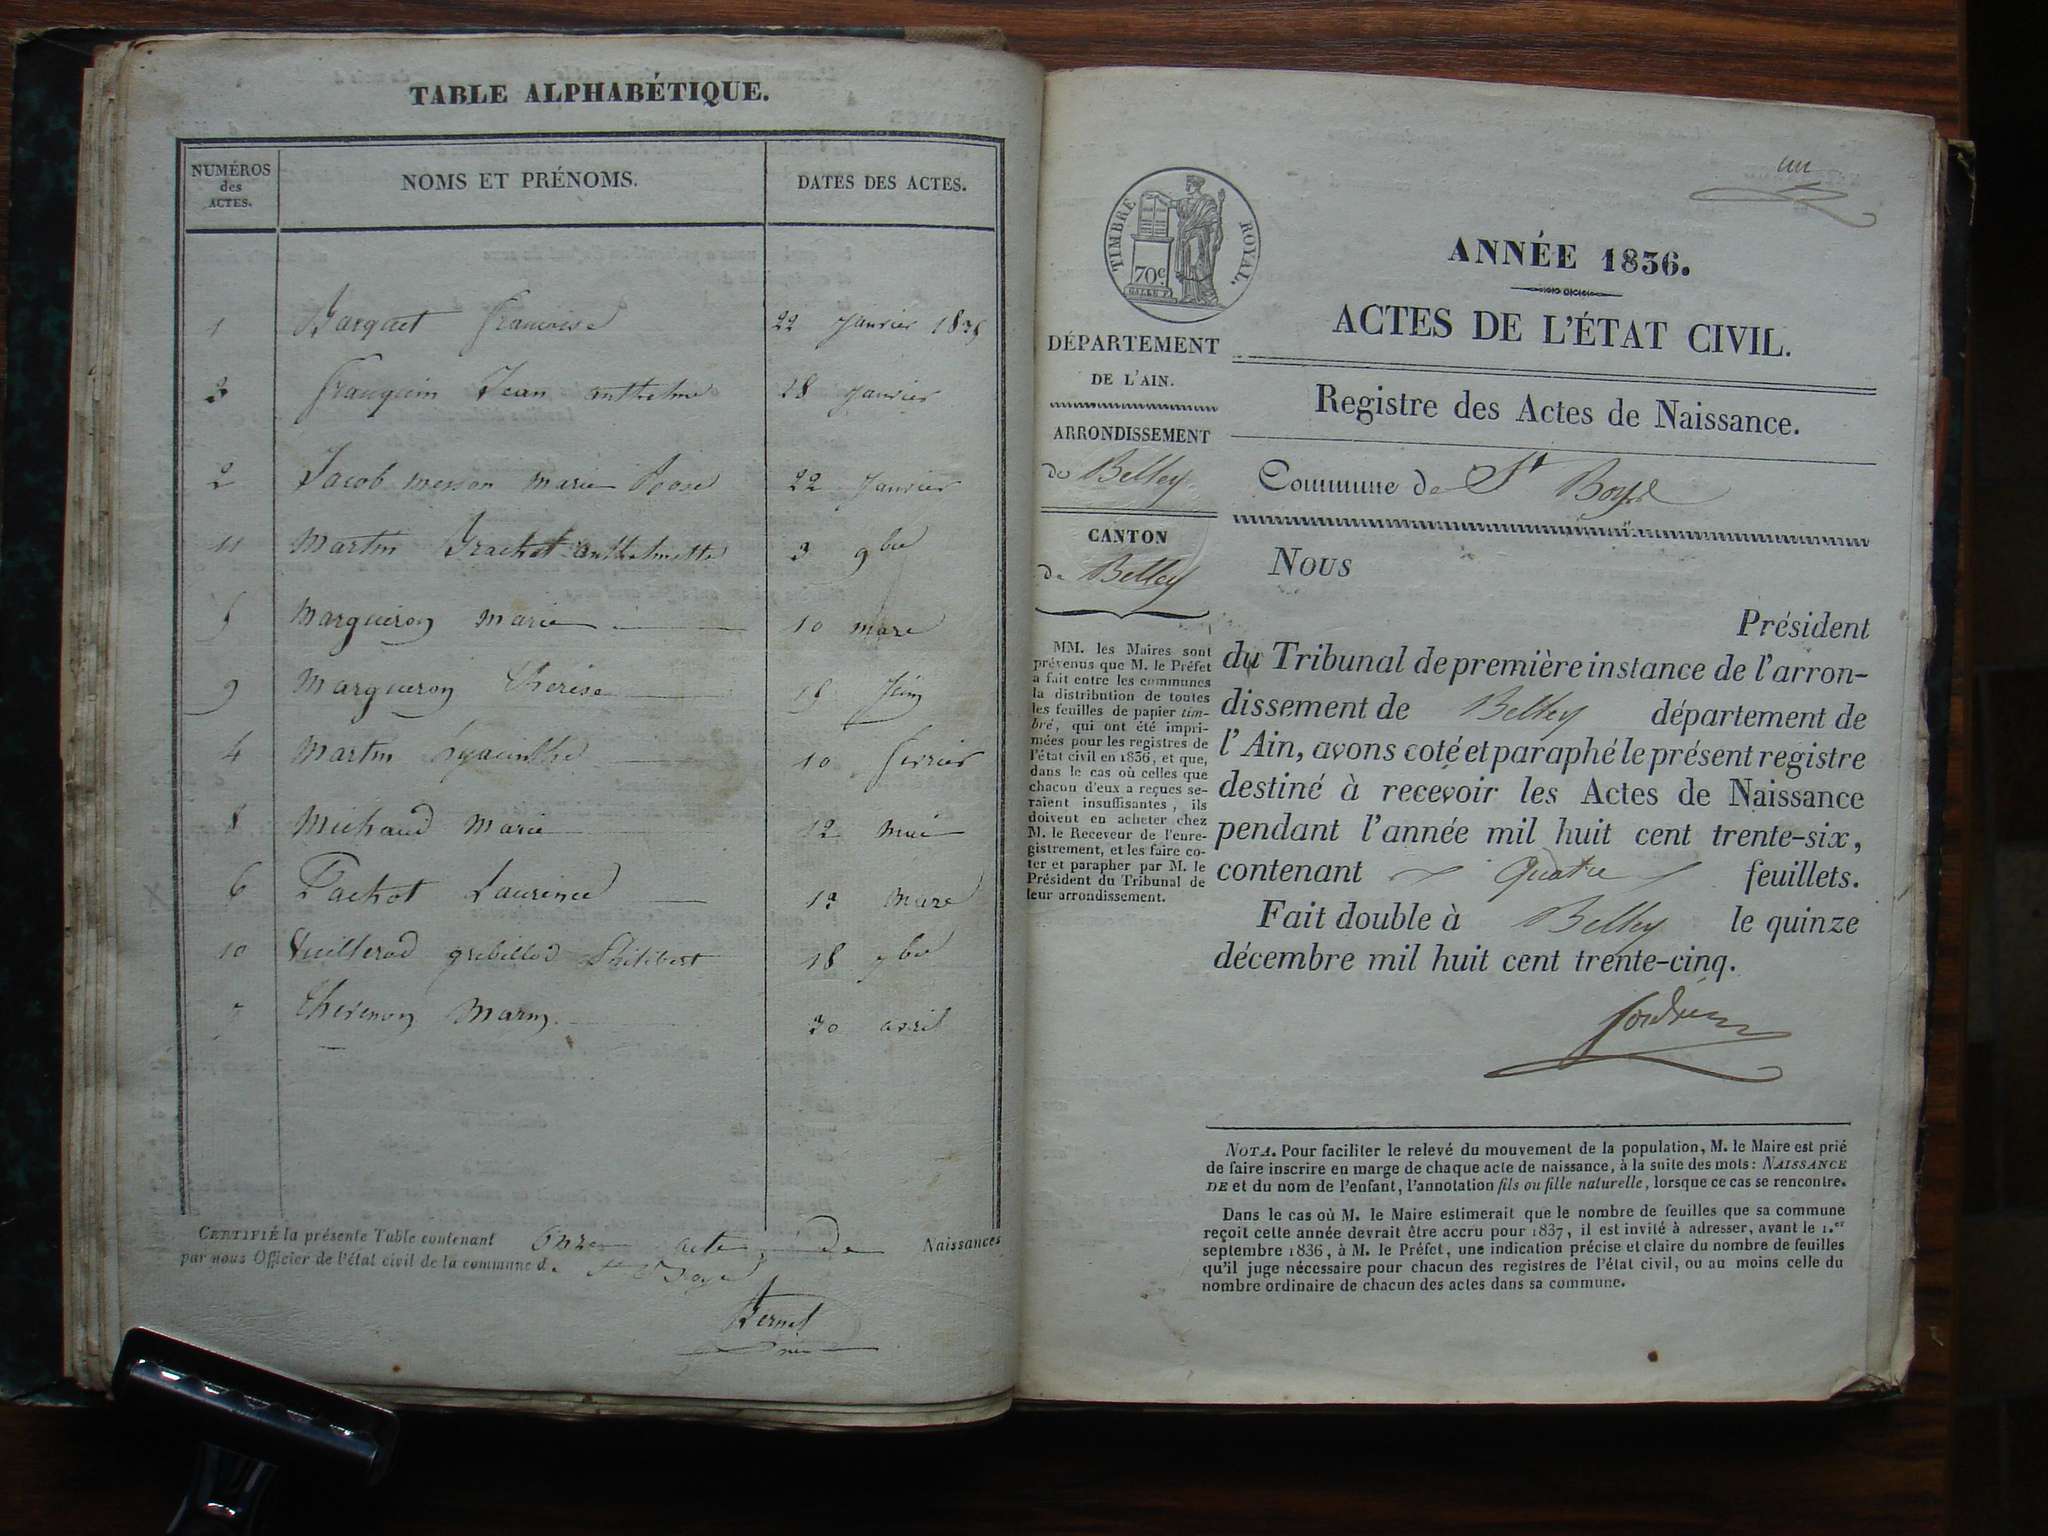 TABLE ALPHABÉTIQUE.
NUMÉROS
des
ACTES.
NOMS ET PRÉNOMS.
DATES DES ACTES.
1 Françoise 22 Janvier 1835
3 Jean anthelme 28 Janvier
2 Jacob messon marie Rose 22 Janvier
11 Martin anthelmette 3 9bre
5 Margueron marie 10 mars
9 Margueron therese 18 Juin
4 Martin hyacinthe 10 fevrier
8 Michaud marie 12 mai
6 Pachot Laurence mars
10 Philibert 18 9bre
thevenon 30 avril
CERTIFIÉ la présente Table contenant Onze actes de Naissances
par nous Officier de l'état civil de la commune de
un
TIMBRE ROYAL.
70c.
DÉPARTEMENT
DE L'AIN.
ARRONDISSEMENT
de Belley
CANTON
de Belley
MM. les Maires sont
prévenus que M. le Préfet
a fait entre les communes
la distribution de toutes
les feuilles de papier tim-
bré, qui ont été impri-
mées pour les registres de
l'état civil en 1836, et que,
dans le cas où celles que
chacun d'eux a reçues se-
raient insuffisantes, ils
doivent en acheter chez
M. le Receveur de l'enre-
gistrement, et les faire co-
ter et parapher par M. le
Président du Tribunal de
leur arrondissement.
ANNÉE 1836.
ACTES DE L'ÉTAT CIVIL.
Registre des Actes de Naissance.
Commune de St
Nous
Président
du Tribunal de première instance de l'arron-
dissement de Belley département de
l'Ain, avons coté et paraphé le présent registre
destiné à recevoir les Actes de Naissance
pendant l'année mil huit cent trente-six,
contenant Quatre feuillets.
Fait double à Belley le quinze
décembre mil huit cent trente-cinq.
NOTA. Pour faciliter le relevé du mouvement de la population, M. le Maire est prié
de faire inscrire en marge de chaque acte de naissance, à la suite des mots: NAISSANCE
DE et du nom de l'enfant, l'annotation fils ou fille naturelle, lorsque ce cas se rencontre.
Dans le cas où M. le Maire estimerait que le nombre de feuilles que sa commune
reçoit cette année devrait être accru pour 1837, il est invité à adresser, avant le 1.er
septembre 1836, à M. le Préfet, une indication précise et claire du nombre de feuilles
qu'il juge nécessaire pour chacun des registres de l'état civil, ou au moins celle du
nombre ordinaire de chacun des actes dans sa commune.